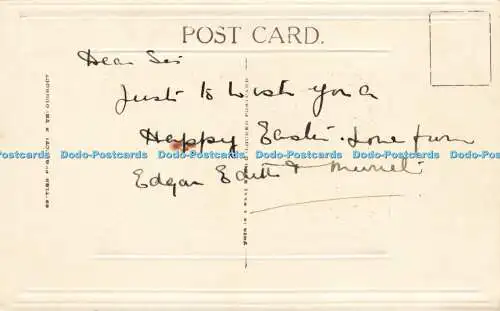 POST CARD.
Dear Sis
Just to wish you a
Happy Easter. Love from
Dodo-Postcards Dodo-Postcards Dodo-Postcards Dodo-Postcards Dodo-Postcards Dodo-Postcards Dodo-Postcards
Edgar Edith & Muriel